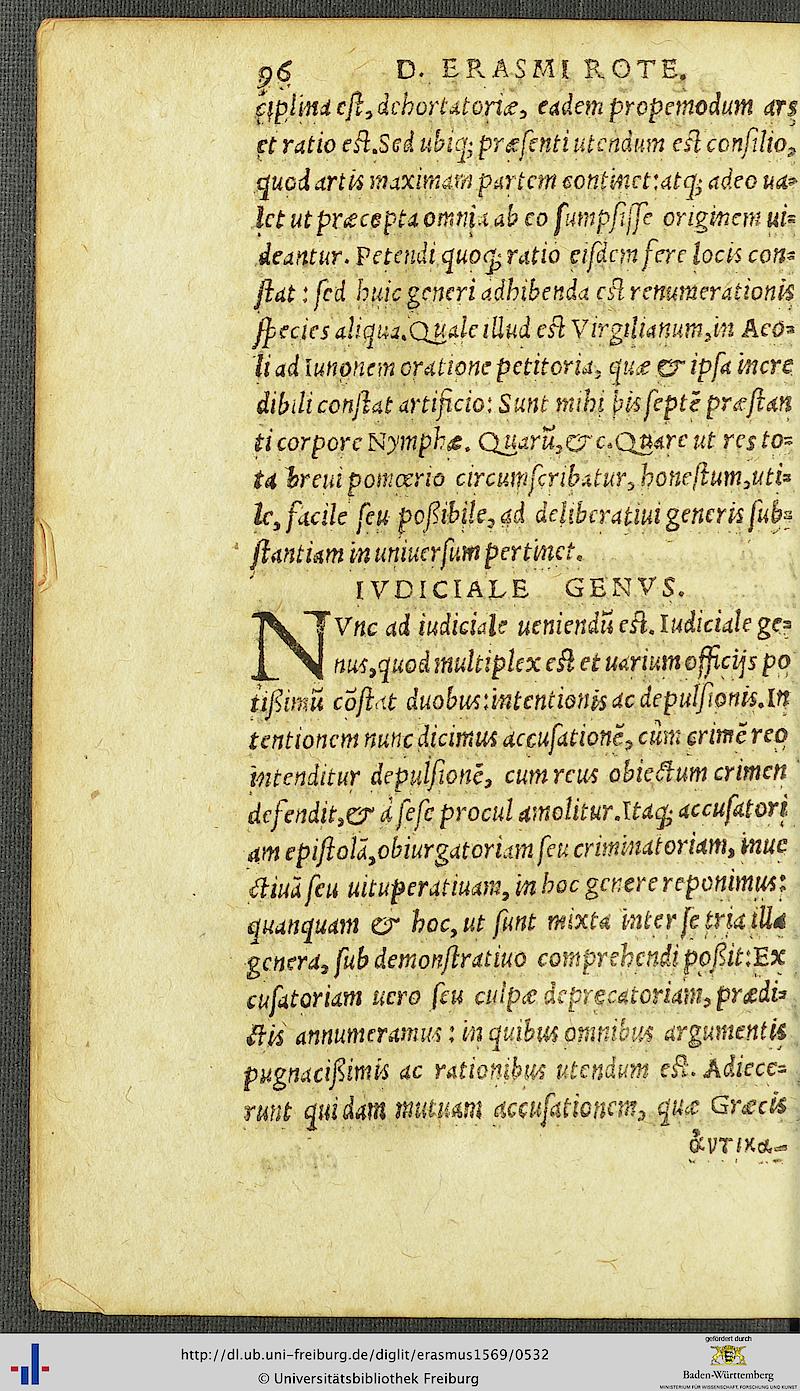 96 D. ERASMI ROTE.
ciplina eſt, dehortatoriæ, eadem propemodum ars
et ratio eſt. Sed ubiq; præſenti utendum eſt conſilio,
quod artis maximam partem continet: atq; adeo ua-
let ut præcepta omnia ab eo ſumpſiſſe originem ui-
deantur. Petendi quoq; ratio eiſdem fere locis con-
ſtat: ſed huic generi adhibenda eſt renumerationis
ſpecies aliqua. Quale illud eſt Virgilianum, in Aeo-
li ad Iunonem oratione petitoria, quæ & ipſa incre
dibili conſtat artificio: Sunt mihi bis ſeptē præſtan
ti corpore Nymphæ. Quarū, & c. Quare ut res to-
ta breui pomœrio circumſcribatur, honeſtum, uti-
le, facile ſeu poßibile, ad deliberatiui generis ſub-
ſtantiam in uniuerſum pertinet.
IVDICIALE GENVS.
NVnc ad iudiciale ueniendū eſt. Iudiciale ge-
nus, quod multiplex eſt et uarium officijs po
tißimū cōſtat duobus: intentionis ac depulſionis. In
tentionem nunc dicimus accuſationē, cùm crimē reo
intenditur depulſionē, cum reus obiectum crimen
defendit, & à ſeſe procul amolitur. Itaq; accuſatori
am epiſtolā, obiurgatoriam ſeu criminatoriam, inue
ctiuā ſeu uituperatiuam, in hoc genere reponimus:
quanquam & hoc, ut ſunt mixta inter ſe tria illa
genera, ſub demonſtratiuo comprehendi poßit: Ex
cuſatoriam uero ſeu culpæ deprecatoriam, prædi-
ctis annumeramus: in quibus omnibus argumentis
pugnacißimis ac rationibus utendum eſt. Adiece-
runt quidam mutuam accuſationem, quæ Græcis
ἀντικα-
http://dl.ub.uni-freiburg.de/diglit/erasmus1569/0532
© Universitätsbibliothek Freiburg
gefördert durch
Baden-Württemberg
MINISTERIUM FÜR WISSENSCHAFT, FORSCHUNG UND KUNST